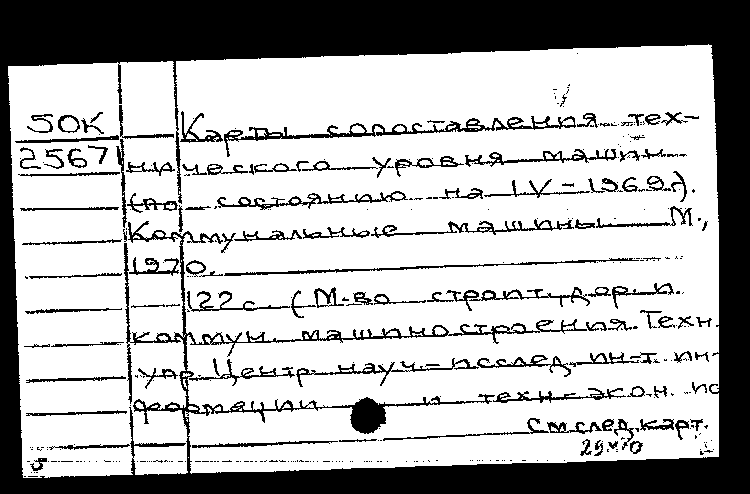 50К Карты сопоставления тех-
25671 нического уровня машин
(по состоянию на IV-1969г).
Коммунальные машины. М.,
1970.
122с. (М-во строит., дор. и
коммун. машиностроения. Техн.
упр. Центр. науч-исслед. ин-т ин-
формации и техн-экон. по
См след. карт.